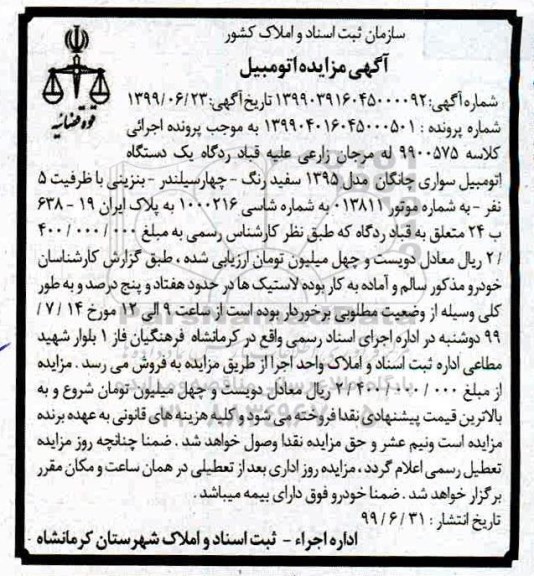 سازمان ثبت اسناد و املاک کشور
آگهی مزایده اتومبیل
قوه قضائیه
شماره آگهی: ۱۳۹۹۰۳۹۱۶۰۴۵۰۰۰۰۹۲ تاریخ آگهی: ۱۳۹۹/۰۶/۲۳
شماره پرونده : ۱۳۹۹۰۴۰۱۶۰۴۵۰۰۰۵۰۱ به موجب پرونده اجرائی
کلاسه ۹۹۰۰۵۷۵ له مرجان زارعی علیه قباد ردگاه یک دستگاه
اتومبیل سواری چانگان مدل ۱۳۹۵ سفید رنگ - چهارسیلندر - بنزینی با ظرفیت ۵
نفر - به شماره موتور ۰۱۳۸۱۱ به شماره شاسی ۱۰۰۰۲۱۶ به پلاک ایران ۱۹ - ۶۳۸
ب ۲۴ متعلق به قباد ردگاه که طبق نظر کارشناس رسمی به مبلغ ۴۰۰/۰۰۰/۰۰۰
/۲ ریال معادل دویست و چهل میلیون تومان ارزیابی شده ، طبق گزارش کارشناسان
خودرو مذکور سالم و آماده به کار بوده لاستیک ها در حدود هفتاد و پنج درصد و به طور
کلی وسیله از وضعیت مطلوبی برخوردار بوده است از ساعت ۹ الی ۱۲ مورخ ۱۴ / ۷/
۹۹ دوشنبه در اداره اجرای اسناد رسمی واقع در کرمانشاه فرهنگیان فاز ۱ بلوار شهید
مطاعی اداره ثبت اسناد و املاک واحد اجرا از طریق مزایده به فروش می رسد . مزایده
از مبلغ ۲/۴۰۰/۰۰۰/۰۰۰ ریال معادل دویست و چهل میلیون تومان شروع و به
بالاترین قیمت پیشنهادی نقدا فروخته می شود و کلیه هزینه های قانونی به عهده برنده
مزایده است ونیم عشر و حق مزایده نقدا وصول خواهد شد . ضمنا چنانچه روز مزایده
تعطیل رسمی اعلام گردد ، مزایده روز اداری بعد از تعطیلی در همان ساعت و مکان مقرر
برگزار خواهد شد . ضمنا خودرو فوق دارای بیمه میباشد .
تاریخ انتشار : ۹۹/۶/۳۱
اداره اجراء - ثبت اسناد و املاک شهرستان کرمانشاه